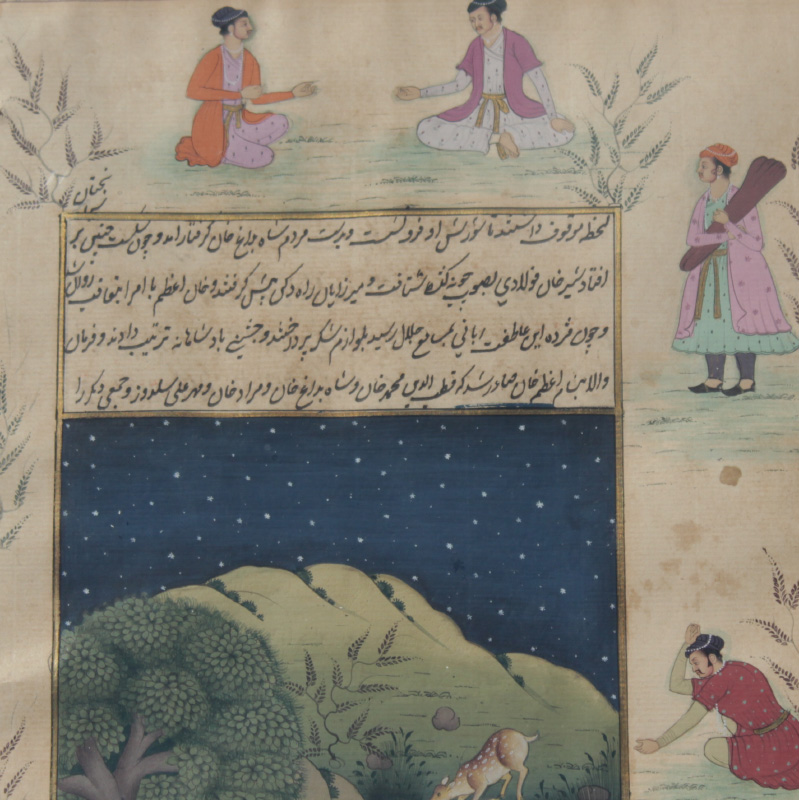 لحظه موقوف داشتند تا شورش او فرو نشست و بدست مردم شاه بداغ خان گرفتار آمد و چون شکست چنین بر
افتاد شیر خان فولادی بصوب جونه گده شتافت و میرزایان راه دکن پیش گرفتند و خان اعظم با امرا بتعاقب روان
و چون مژده این عاطفت ربانی بمسامع جلال رسید بلوازم شکر پرداختند و جشنی بادشاهانه ترتیب دادند و فرمان
والا بنام اعظم خان صادر شد که قطب الدین محمد خان و شاه بداغ خان و مراد خان و مهر علی سلدوز و جمعی دیگر را